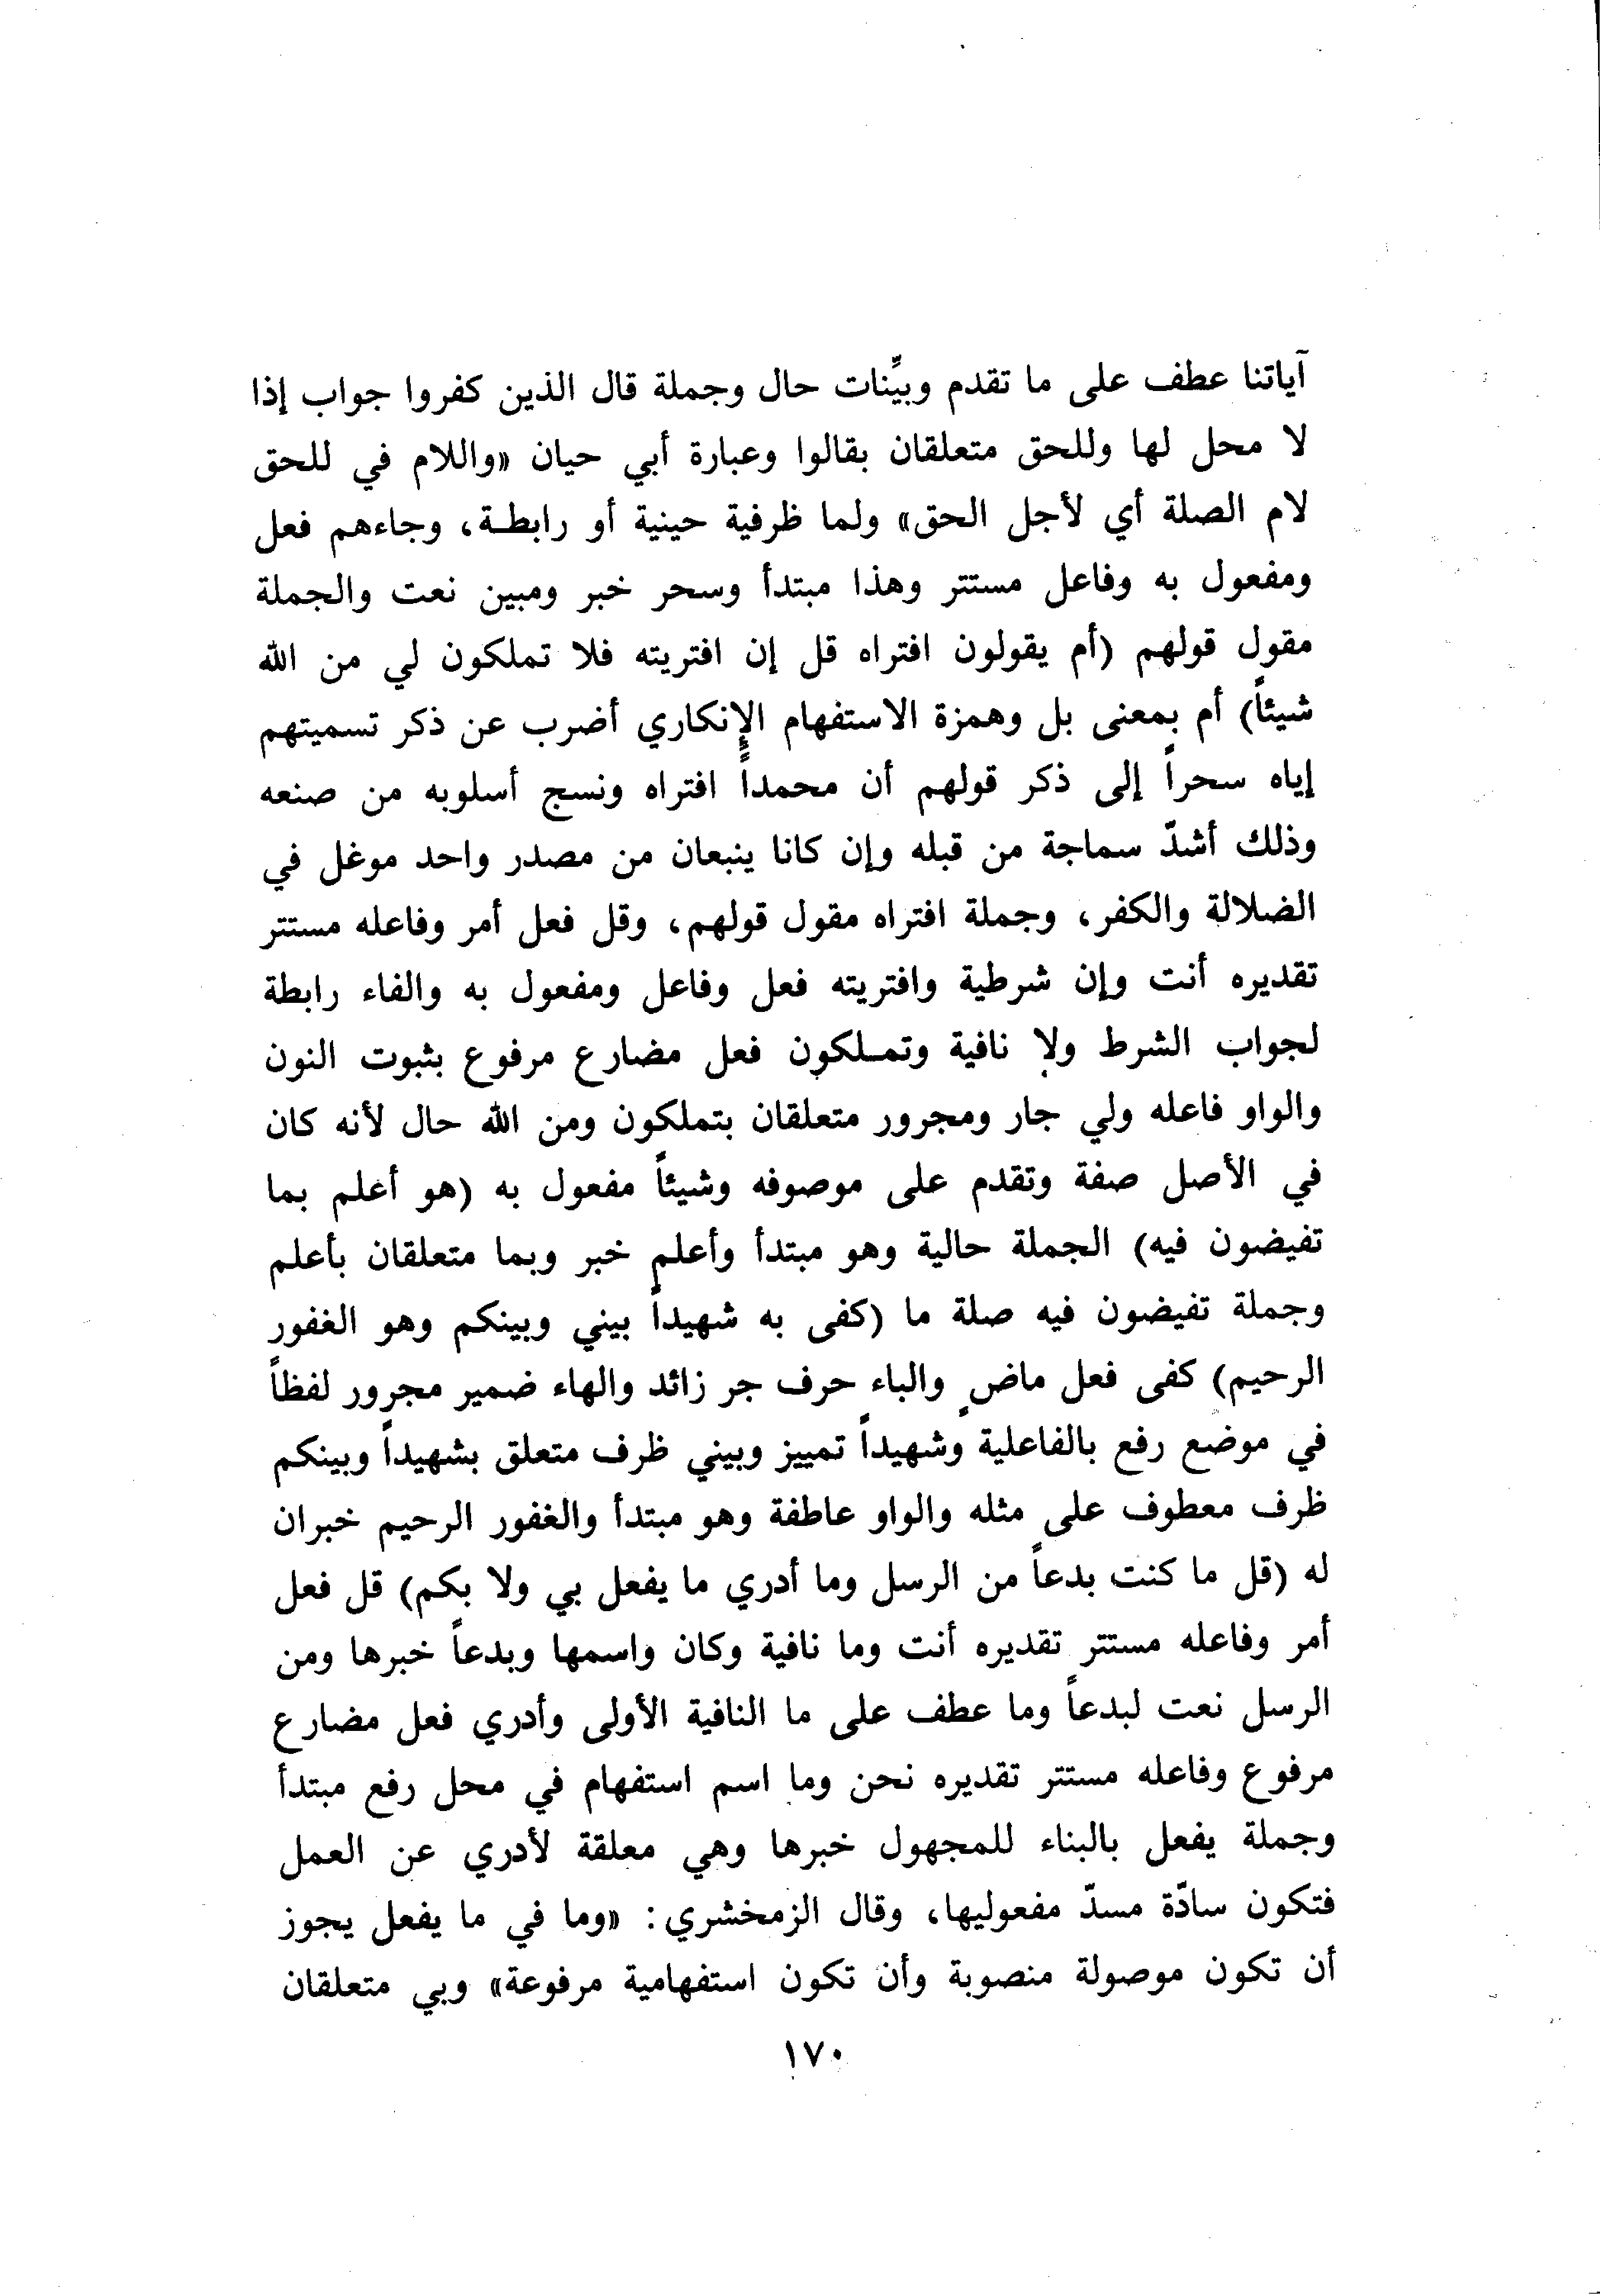 آياتنا عطف على ما تقدم وبيِّنات حال وجملة قال الذين كفروا جواب إذا
لا محل لها وللحق متعلقان بقالوا وعبارة أبي حيان «واللام في للحق
لام الصلة أي لأجل الحق» ولما ظرفية حينية أو رابطـة، وجاءهم فعل
ومفعول به وفاعل مستتر وهذا مبتدأ وسحر خبر ومبين نعت والجملة
مقول قولهم (أم يقولون افتراه قل إن افتريته فلا تملكون لي من الله
شيئاً) أم بمعنى بل وهمزة الاستفهام الإنكاري أضرب عن ذكر تسميتهم
إياه سحراً إلى ذكر قولهم أن محمداً افتراه ونسج أسلوبه من صنعه
وذلك أشدّ سماجة من قبله وإن كانا ينبعان من مصدر واحد موغل في
الضلالة والكفر، وجملة افتراه مقول قولهم، وقل فعل أمر وفاعله مستتر
تقديره أنت وإن شرطية وافتريته فعل وفاعل ومفعول به والفاء رابطة
لجواب الشرط ولا نافية وتمـلكون فعل مضارع مرفوع بثبوت النون
والواو فاعله ولي جار ومجرور متعلقان بتملكون ومن الله حال لأنه كان
في الأصل صفة وتقدم على موصوفه وشيئاً مفعول به (هو أعلم بما
تفيضون فيه) الجملة حالية وهو مبتدأ وأعلم خبر وبما متعلقان بأعلم
وجملة تفيضون فيه صلة ما (كفى به شهيداً بيني وبينكم وهو الغفور
الرحيم) كفى فعل ماضٍ والباء حرف جر زائد والهاء ضمير مجرور لفظاً
في موضع رفع بالفاعلية وشهيداً تمييز وبيني ظرف متعلق بشهيداً وبينكم
ظرف معطوف على مثله والواو عاطفة وهو مبتدأ والغفور الرحيم خبران
له (قل ما كنت بدعاً من الرسل وما أدري ما يفعل بي ولا بكم) قل فعل
أمر وفاعله مستتر تقديره أنت وما نافية وكان واسمها وبدعاً خبرها ومن
الرسل نعت لبدعاً وما عطف على ما النافية الأولى وأدري فعل مضارع
مرفوع وفاعله مستتر تقديره نحن وما اسم استفهام في محل رفع مبتدأ
وجملة يفعل بالبناء للمجهول خبرها وهي معلقة لأدري عن العمل
فتكون سادّة مسدّ مفعوليها، وقال الزمخشري: «وما في ما يفعل يجوز
أن تكون موصولة منصوبة وأن تكون استفهامية مرفوعة» وبي متعلقان
١٧٠